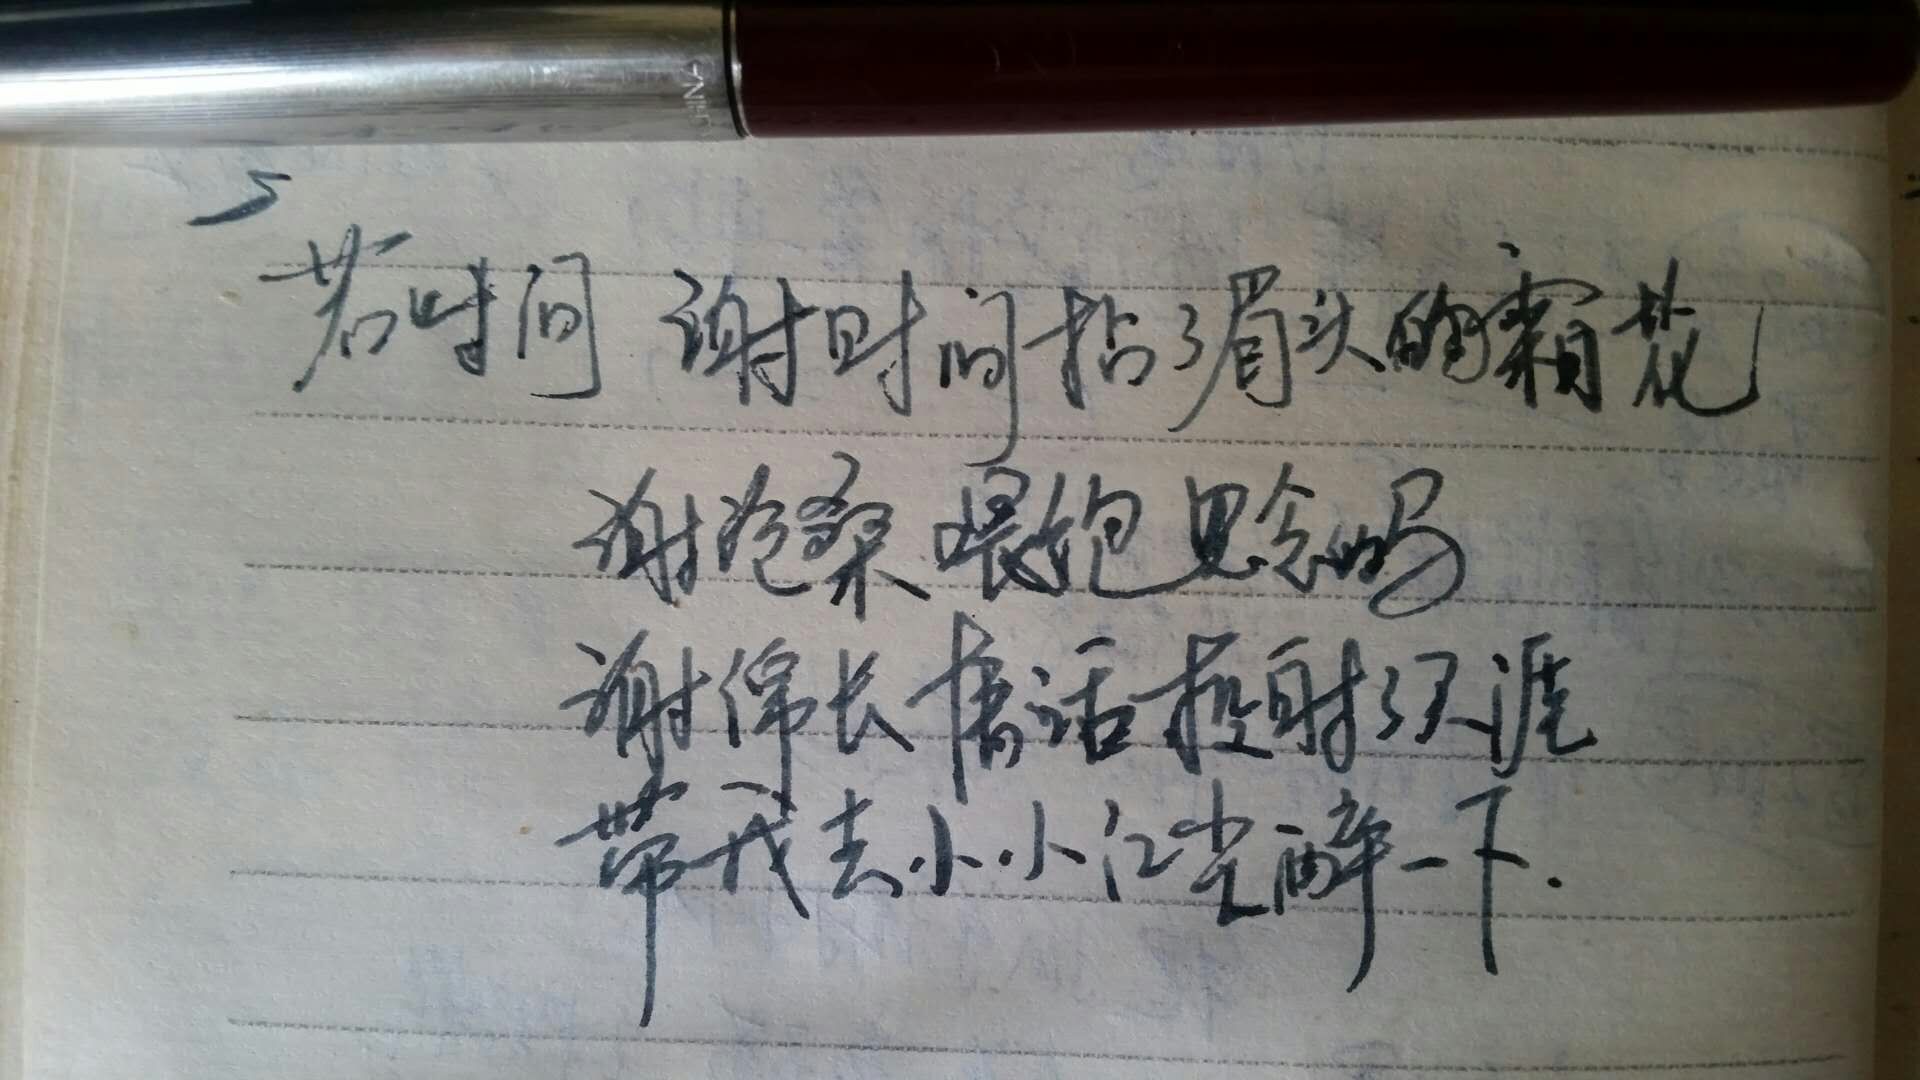 CHINA
若时间 谢时间拈了眉头的霜花
谢沧桑 喂饱思念吗
谢绵长 情话投射了天涯
带我去小小江尘醉一下.